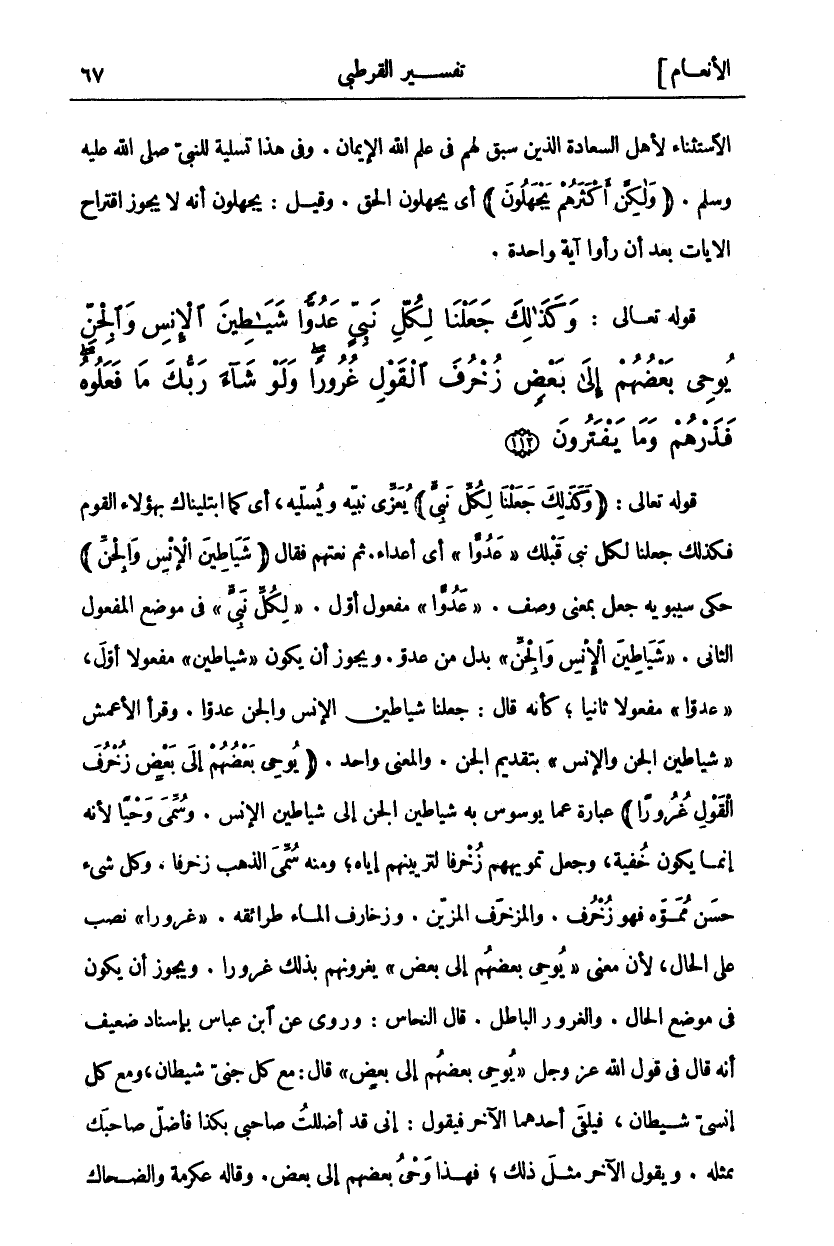 الأنعـام] تفســـير القرطبى ٦٧
الآستثناء لأهل السعادة الذين سبق لهم فى علم الله الإيمان . وفى هذا تسلية للنبىّ صلى الله عليه
وسلم . ﴿ وَلَٰكِنَّ أَكْثَرَهُمْ يَجْهَلُونَ ﴾ أى يجهلون الحق . وقيـل : يجهلون أنه لا يجوز اقتراح
الايات بعد أن رأوا آية واحدة .
قوله تعـالى : وَكَذَٰلِكَ جَعَلْنَا لِكُلِّ نَبِيٍّ عَدُوًّا شَيَٰطِينَ ٱلْإِنسِ وَٱلْجِنِّ
يُوحِى بَعْضُهُمْ إِلَىٰ بَعْضٍ زُخْرُفَ ٱلْقَوْلِ غُرُورًا ۚ وَلَوْ شَآءَ رَبُّكَ مَا فَعَلُوهُ ۖ
فَذَرْهُمْ وَمَا يَفْتَرُونَ ١١٢
قوله تعالى : ﴿ وَكَذَلِكَ جَعَلْنَا لِكُلِّ نَبِيٍّ ﴾ يُعَزِّى نبيّه ويُسلّيه، أى كما ابتليناك بهؤلاء القوم
فكذلك جعلنا لكل نبى قَبْلك « عَدُوًّا » أى أعداء. ثم نعتهم فقال ﴿ شَيَاطِينَ الْإِنْسِ وَالْجِنِّ ﴾
حكى سيبويه جعل بمعنى وصف . « عَدُوًّا » مفعول أوّل . « لِكُلِّ نَبِيٍّ » فى موضع المفعول
الثانى . «شَيَاطِينَ الْإِنْسِ وَالْجِنِّ» بدل من عدوّ. ويجوز أن يكون «شياطين» مفعولا أوّلَ،
« عدوّا » مفعولا ثانيا ؛ كأنه قال : جعلنا شياطين الإنس والجن عدوّا . وقرأ الأعمش
« شياطين الجن والإنس » بتقديم الجن . والمعنى واحد . ﴿ يُوحِى بَعْضُهُمْ إِلَى بَعْضٍ زُخْرُفَ
الْقَوْلِ غُرُورًا ﴾ عبارة عما يوسوس به شياطين الجن إلى شياطين الإنس . وسُمِّىَ وَحْيًا لأنه
إنمـا يكون خُفية، وجعل تمويههم زُخْرفا لتزيينهم إياه؛ ومنه سُمِّىَ الذهب زخرفا . وكل شىء
حسَن مُمَوّه فهو زُخْرُف . والمزخرَف المزيّن . وزخارف المـاء طرائقه . «غرورا» نصب
على الحال، لأن معنى « يُوحِى بعضهُم إلى بعض » يغرونهم بذلك غرورا . ويجوز أن يكون
فى موضع الحال . والغرور الباطل . قال النحاس : وروى عن آبن عباس بإسناد ضعيف
أنه قال فى قول الله عز وجل «يُوحِى بعضهُم إلى بعضٍ» قال: مع كل جنىّ شيطان، ومع كل
إنسىّ شـيطان ، فيلقَى أحدهما الآخر فيقول : إنى قد أضللتُ صاحبى بكذا فأضلّ صاحبَك
بمثله . ويقول الآخر مثـلَ ذلك ؛ فهـذا وَحْىُ بعضهم إلى بعض. وقاله عكرمة والضـحاك